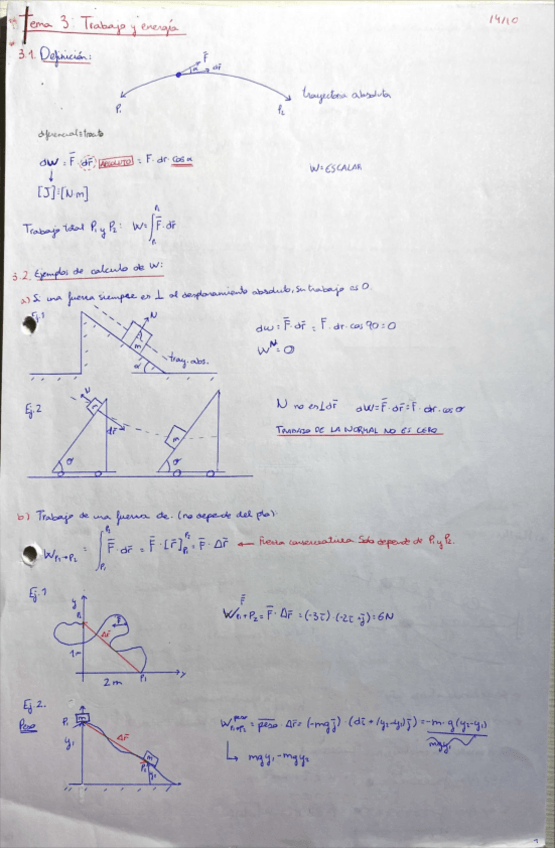 Tema 3: Trabajo y energía
14/10
3.1. Definición:
F̄
α
dr̄
P₁
P₂
trayectoria absoluta
dW = F̄ · dr̄ ABSOLUTO = F · dr · cos α
W = ESCALAR
[J]=[N·m]
Trabajo total P₁ y P₂: W = ∫ F̄ · dr̄
P₂
P₁
3.2. Ejemplos de calculo de W:
a) Si una fuerza siempre es ⊥ al desplazamiento absoluto, su trabajo es 0
Ej. 1
N
m
tray. abs.
dw = F̄ · dr̄ = F · dr · cos 90 = 0
Wᴺ = 0
Ej. 2
N
dr̄
m
N no es ⊥ dr̄ dW = F̄ · dr̄ = F · dr · cos σ
TRABAJO DE LA NORMAL NO ES CERO
b) Trabajo de una fuerza cte. (no depende del pto).
W P₁→P₂ = ∫ F̄ · dr̄ = F̄ · [r̄] = F̄ · Δr̄ ← Fuerza conservativa Solo depende de P₁ y P₂.
Ej. 1
y
P₂
Δr̄
F̄
1m
2m
P₁
x
W P₁→P₂ = F̄ · Δr̄ = (-3ī) · (-2ī+j̄) = 6N
Ej 2.
Peso
P₁
m
y₁
Δr̄
m
W peso P₁→P₂ = peso · Δr̄ = (-mgj̄) · (dī + (y₂-y₁)j̄) = -m·g(y₂-y₁)
mgy₁
↳ mgy₁ - mgy₂
1